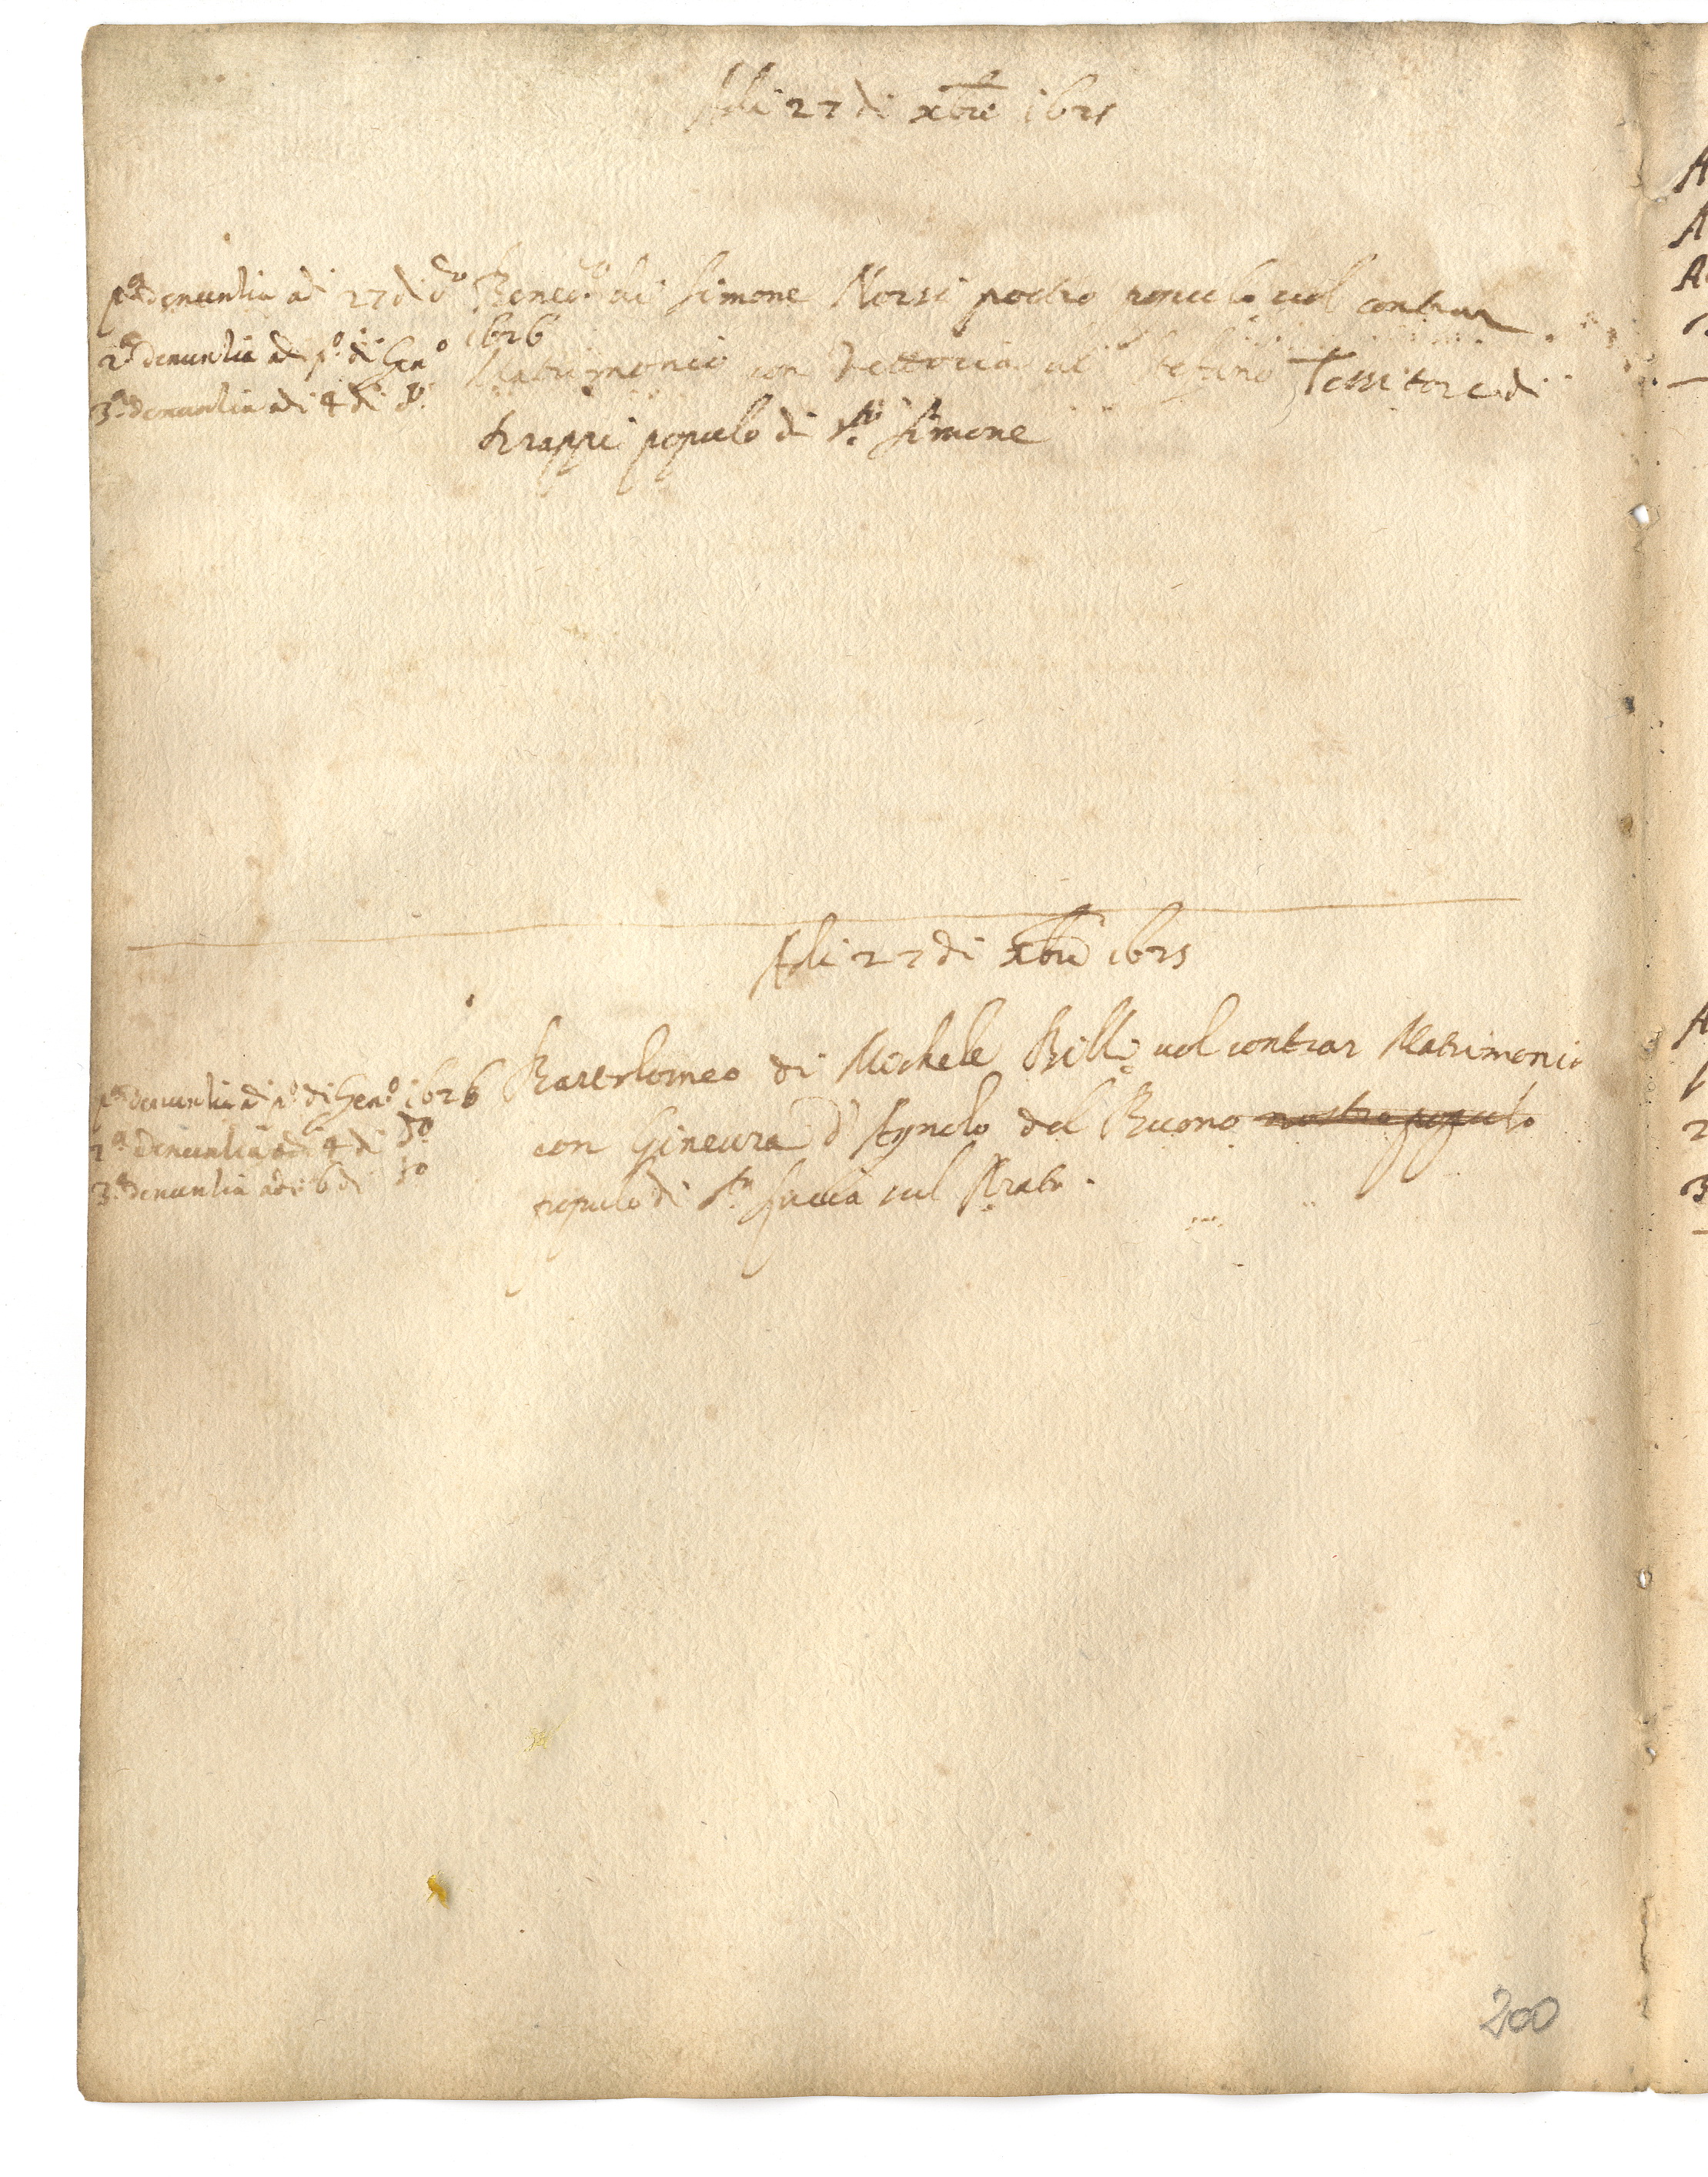 Adi 27 di xbre 1625
pa denuntia adi 27 di do
2a denuntia adi po di Gen.o 1626
3a denuntia adi 4 di do
Bened.o di Simone Norsi nostro populo vol contrar
Matrimonio con Vettoria di Stefano Tessitore di
drappi populo di Sto Simone
Adi 27 di xbre 1625
pa denuntia adi po di Gen.o 1626
2a denuntia adi 4 di do
3a denuntia adi 6 di do
Bartolomeo di Michele Billi vol contrar Matrimonio
con Ginevra d'Agnolo del Buono nostro populo
populo di Sta Lucia sul Prato.
200